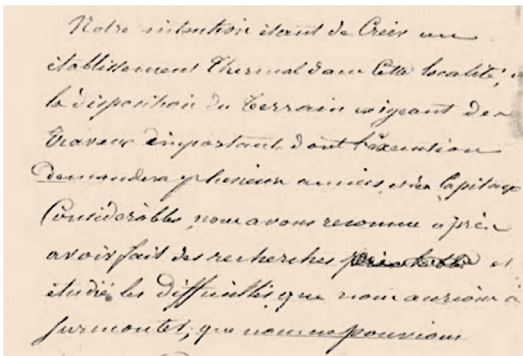 Notre intention étant de Créer un
établissement Thermal dans Cette localité,
la disposition du Terrain exigeant des
Travaux important dont l'éxecution
demandera plusieurs années et des Capitaux
Considérables, nous avons reconnu après
avoir fait des recherches et
étudié les difficultés que nous aurions à
surmonter, que nous ne pouvions